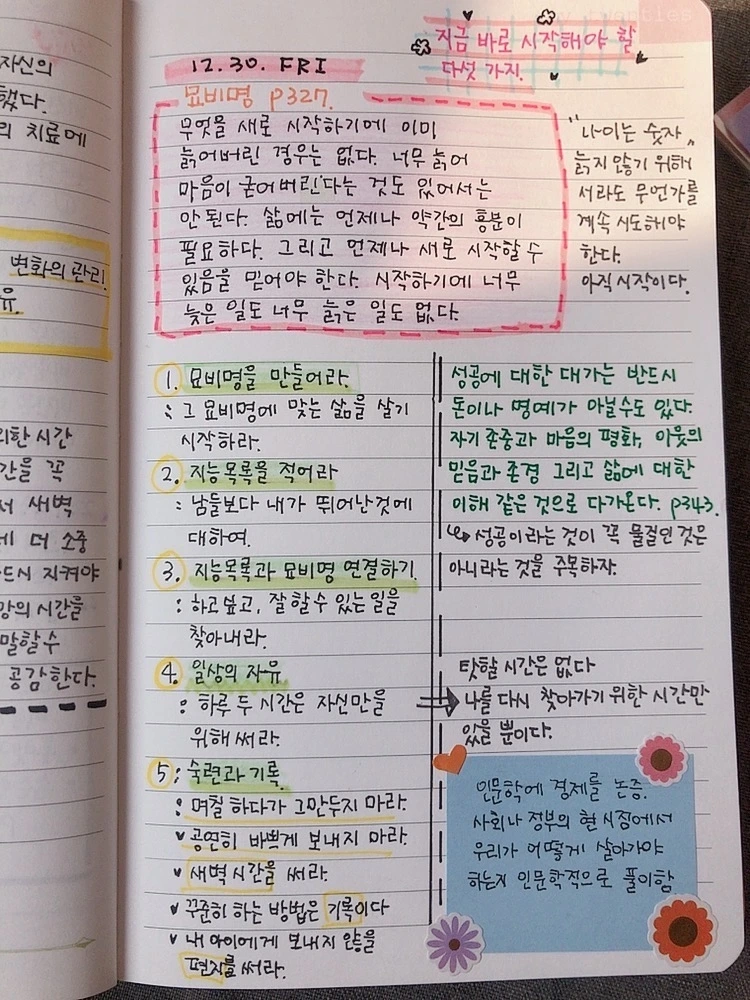 자신의
했다.
의 치료에
변화의 관리!
유.
의한 시간
간을 꼭
서 새벽
에 더 소중
드시 지켜야
앙의 시간을
말할수
공감한다.
지금 바로 시작해야 할
다섯 가지.
12. 30. FRI
묘비명 p327.
무엇을 새로 시작하기에 이미
늙어버린 경우는 없다. 너무 늙어
마음이 굳어버린다는 것도 있어서는
안 된다. 삶에는 언제나 약간의 흥분이
필요하다. 그리고 언제나 새로 시작할 수
있음을 믿어야 한다. 시작하기에 너무
늦은 일도 너무 늙은 일도 없다.
"나이는 숫자"
늙지 않기 위해
서라도 무언가를
계속 시도해야
한다.
아직 시작이다.
1. 묘비명을 만들어라.
: 그 묘비명에 맞는 삶을 살기
시작하라.
2. 지능목록을 적어라
: 남들보다 내가 뛰어난것에
대하여.
3. 지능목록과 묘비명 연결하기.
: 하고싶고, 잘 할 수 있는 일을
찾아내라.
4. 일상의 자유
: 하루 두 시간은 자신만을
위해 써라.
5: 숙련과 기록.
: 며칠 하다가 그만두지 마라.
v 공연히 바쁘게 보내지 마라.
v 새벽 시간을 써라.
v 꾸준히 하는 방법은 기록이다
v 내 아이에게 보내지 않을
편지를 써라.
성공에 대한 대가는 반드시
돈이나 명예가 아닐수도 있다.
자기 존중과 마음의 평화, 이웃의
믿음과 존경 그리고 삶에 대한
이해 같은 것으로 다가온다. p343.
↳ 성공이라는 것이 꼭 물걸인 것은
아니라는 것을 주목하자.
탓할 시간은 없다
→ 나를 다시 찾아가기 위한 시간만
있을 뿐이다.
인문학에 경제를 논증.
사회나 정부의 현 시점에서
우리가 어떻게 살아가야
하는지 인문학적으로 풀이함